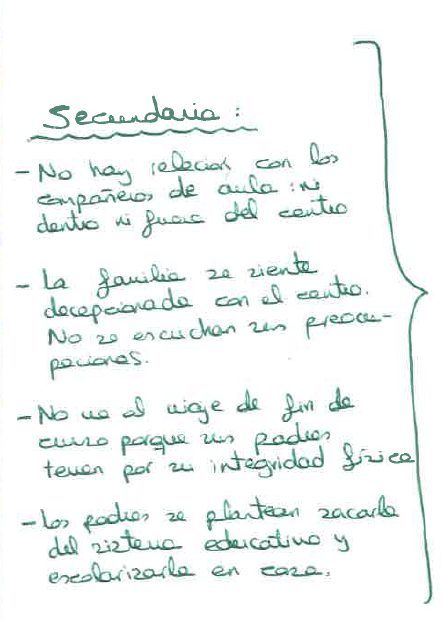 Secundaria:
- No hay relación con los
compañeros de aula: ni
dentro ni fuera del centro
- La familia se siente
decepcionada con el centro.
No se escuchan sus preocu-
paciones.
- No va al viaje de fin de
curso porque sus padres
temen por su integridad física
- Los padres se plantean sacarla
del sistema educativo y
escolarizarla en casa.